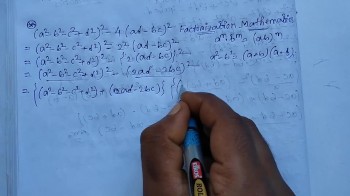 (a²-b²-c²+d²)²-4(ad-bc)² Factorization Mathematics
= (a²-b²-c²+d²)²- 2²(ad-bc)² aᵐ.bᵐ = (ab)ᵐ
= (a²-b²-c²+d²)²- {2(ad-bc)}² a²-b² = (a+b)(a-b)
= (a²-b²-c²+d²)² - (2ad-2bc)²
= {(a²-b²-c²+d²)+(2ad-2bc)} {(